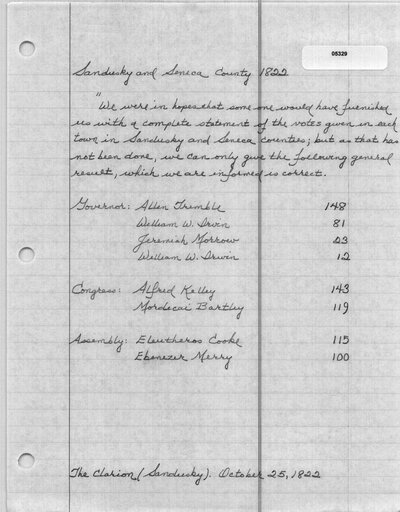 05329
Sandusky and Seneca County 1822
"We were in hopes that some one would have furnished
us with a complete statement of the votes given in each
town in Sandusky and Seneca counties; but as that has
not been done, we can only give the following general
result, which we are informed is correct.
Governor: Allen Trimble 148
William W. Irvin 81
Jeremiah Morrow 23
William W. Irwin 12
Congress: Alfred Kelley 143
Mordecai Bartley 119
Assembly: Elewtheros Cooke 115
Ebenezer Merry 100
The Clarion (Sandusky). October 25, 1822